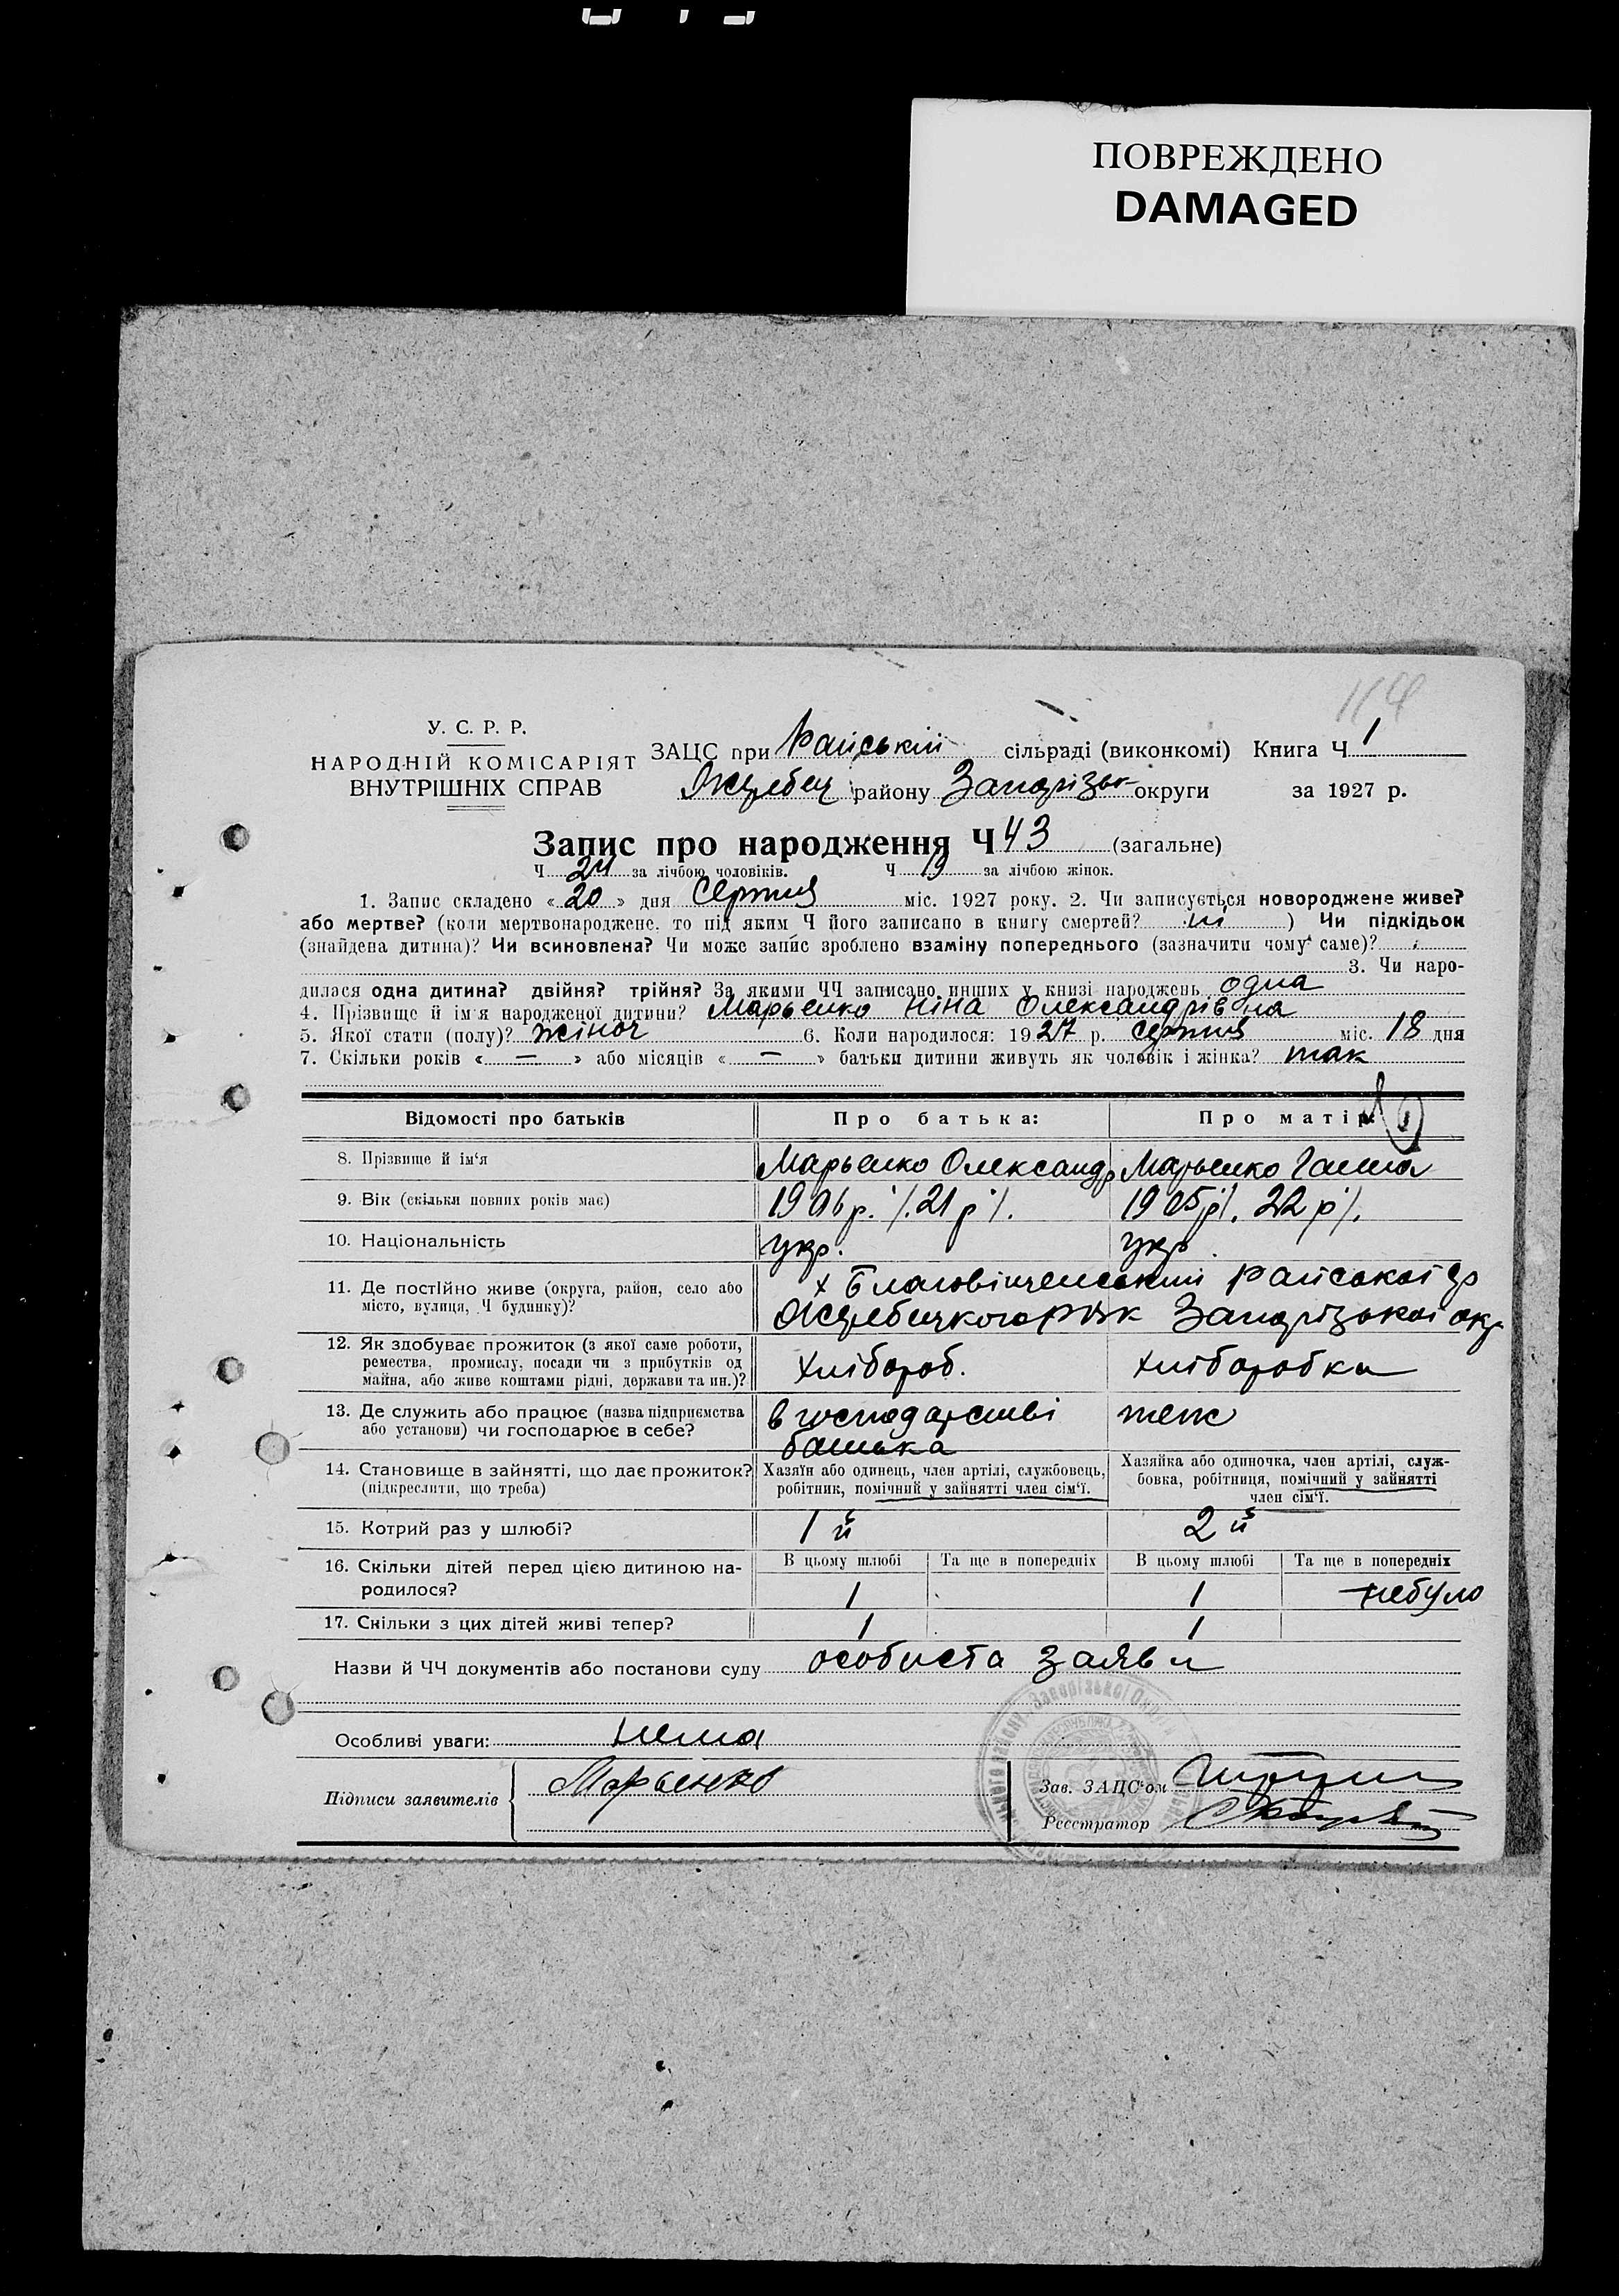 ПОВРЕЖДЕНО
DAMAGED
114
У. С. Р. Р.
НАРОДНІЙ КОМІСАРІЯТ
ВНУТРІШНІХ СПРАВ
ЗАЦС при Райській сільраді (виконкомі) Книга Ч 1
Жеребец району Запорізьк округи за 1927 р.
Запис про народження Ч 43 (загальне)
Ч 24 за лічбою чоловіків. Ч 19 за лічбою жінок.
1. Запис складено « 20 » дня Серпня міс. 1927 року. 2. Чи записується новороджене живе?
або мертве? (коли мертвонароджене, то під яким Ч його записано в книгу смертей? ні ) Чи підкідьок
(знайдена дитина)? Чи всиновлена? Чи може запис зроблено взаміну попереднього (зазначити чому саме)?
3. Чи наро-
дилася одна дитина? двійня? трійня? За якими ЧЧ записано инших у книзі народжень одна
4. Прізвище й ім'я народженої дитини? Марьенко Ніна Олександрівна
5. Якої стати (полу)? жіноч 6. Коли народилося: 1927 р. серпня міс. 18 дня
7. Скільки років « — » або місяців « — » батьки дитини живуть як чоловік і жінка? так
Відомості про батьків Про батька: Про матір:
8. Прізвище й ім‘я Марьенко Олександр Марьенко Ганна
9. Вік (скільки повних років має) 1906 р. /. 21 р /. 1905 р /. 22 р /.
10. Національність укр. укр.
11. Де постійно живе (округа, район, село або
місто, вулиця, Ч будинку)?
х Благовіщенський Райської с/р
Жеребецкого р-ж Запорізької окр
12. Як здобуває прожиток (з якої саме роботи,
ремества, промислу, посади чи з прибутків од
майна, або живе коштами рідні, держави та ин.)?
хлібороб. хліборобка
13. Де служить або працює (назва підприємства
або установи) чи господарює в себе?
в господарстві теж
батька
14. Становище в зайнятті, що дає прожиток?
(підкреслити, що треба)
Хазяїн або одинець, член артілі, службовець,
робітник, помічний у зайнятті член сім‘ї.
Хазяйка або одиночка, член артілі, служ-
бовка, робітниця, помічний у зайнятті
член сім‘ї.
15. Котрий раз у шлюбі? 1й 2й
16. Скільки дітей перед цією дитиною на-
родилося?
В цьому шлюбі Та ще в попередніх В цьому шлюбі Та ще в попередніх
1 1 небуло
17. Скільки з цих дітей живі тепер? 1 1
Назви й ЧЧ документів або постанови суду особиста заява
Особливі уваги: нема
Підписи заявителів Марьенко
Зав. ЗАЦС‘ом
Реєстратор